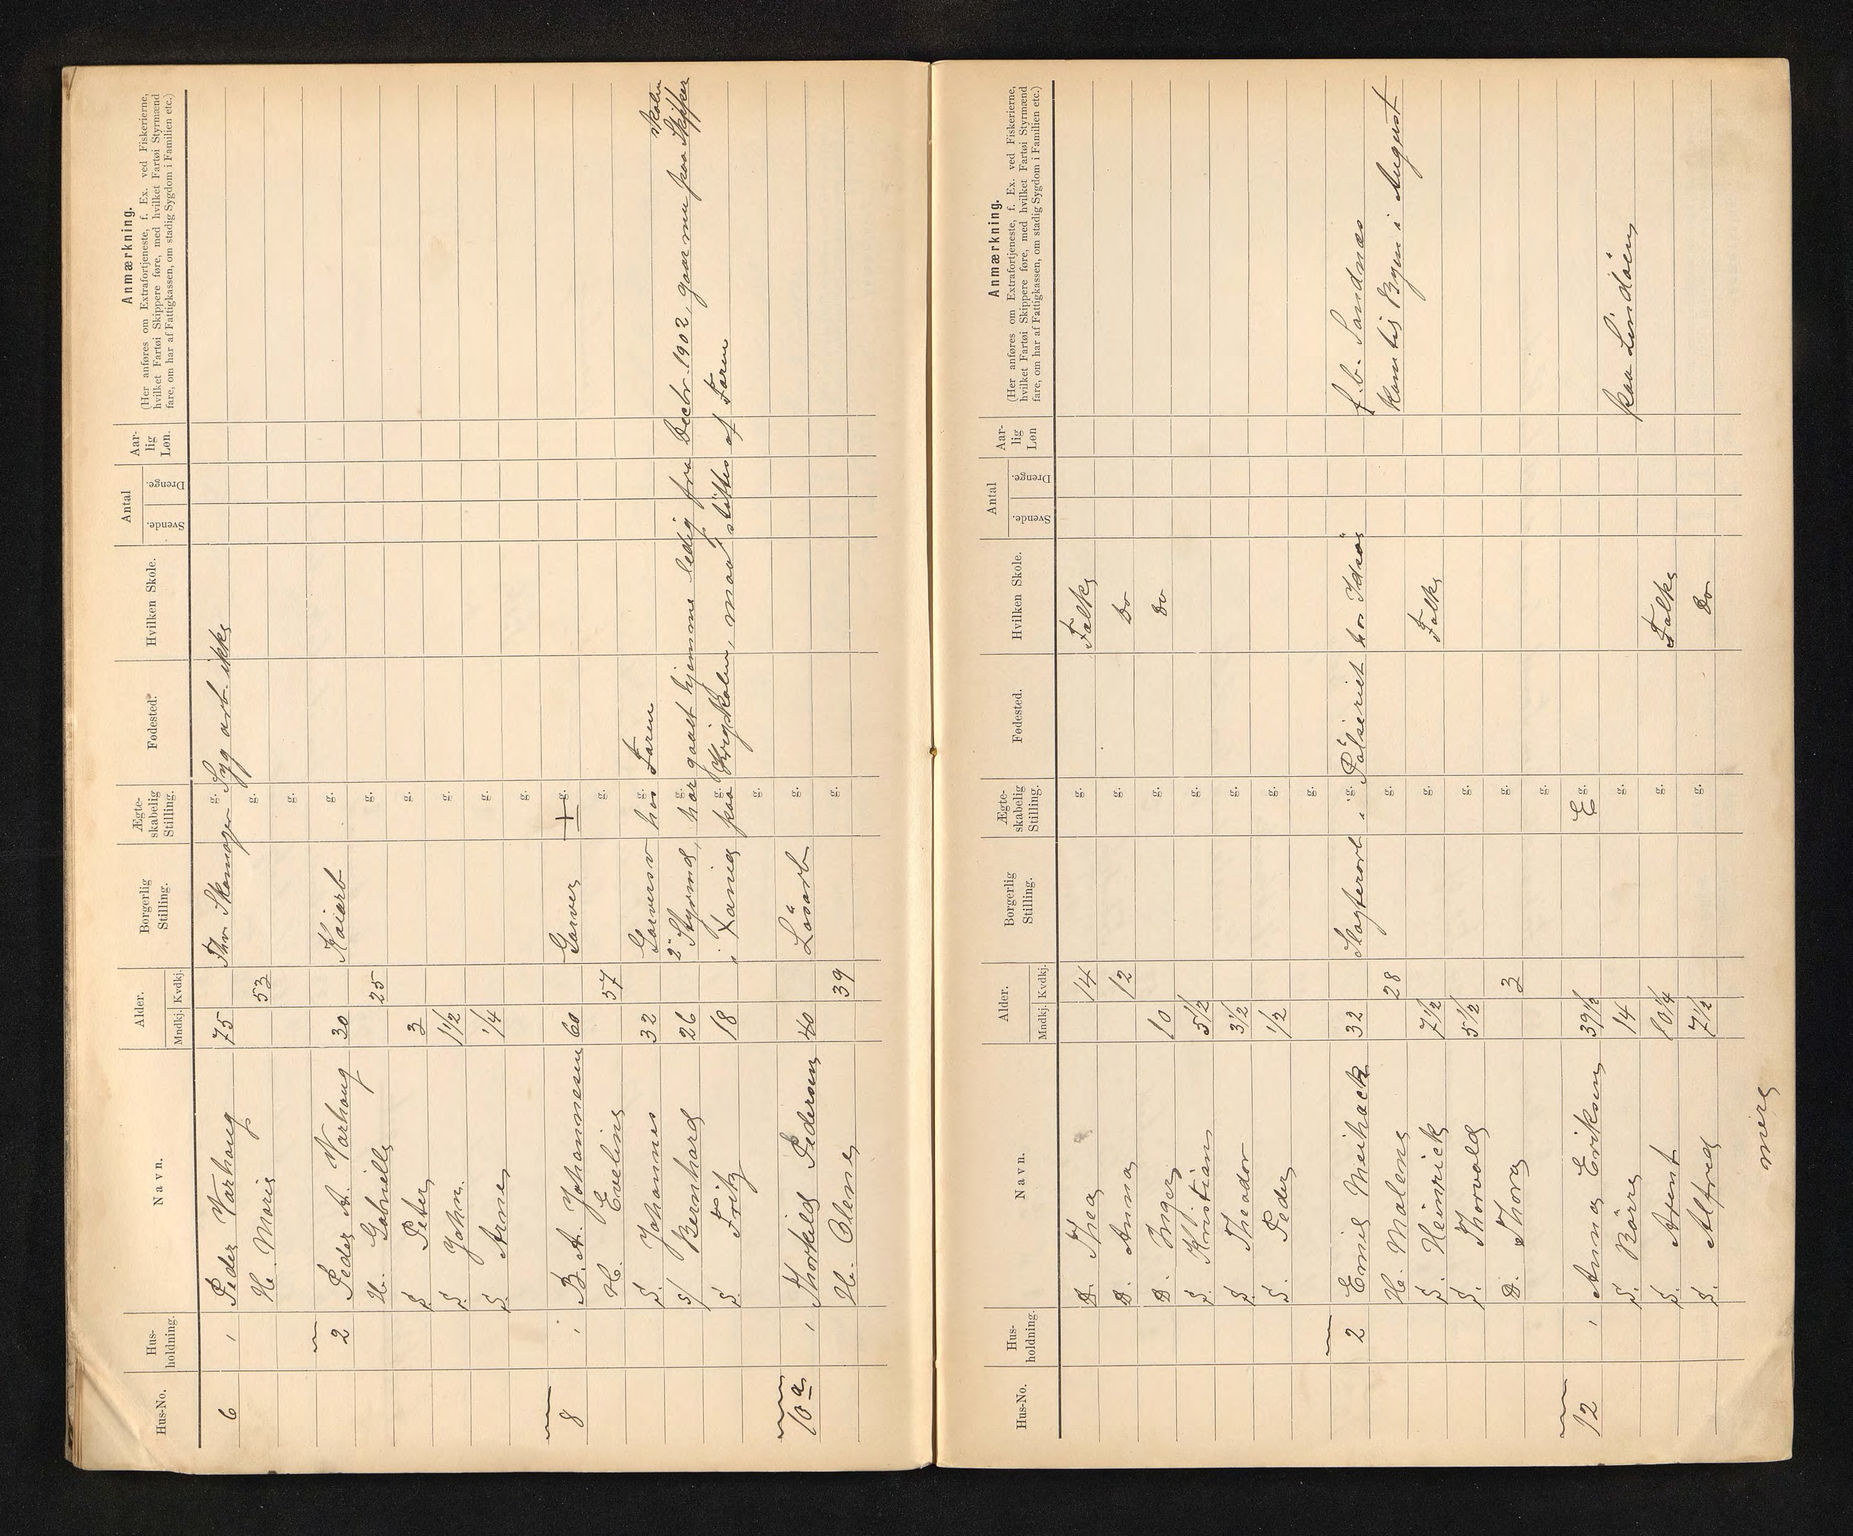 Hus-No. Hus-holdning. Navn. Alder. Mndkj. Kvdkj. Borgerlig Stilling. Ægte-skabelig Stilling. Fødested. Hvilken Skole. Antal Svende. Drenge. Aar-lig Løn. Anmærkning.
(Her anføres om Extrafortjeneste, f. Ex. ved Fiskerierne,
hvilket Fartøi Skippere føre, med hvilket Fartøi Styrmænd
fare, om har af Fattigkassen, om stadig Sygdom i Familien etc.)
6 1 Peder Varhaug 75 Fhv Skomager g. Syg arb. ikke
H. Marie 53 g.
g.
2 Peder A. Varhaug 30 Kaiarb g.
H. Gabrielle 25 g.
S. Peter 3 g.
S. John 1 1/2 g.
S. Arne 1/4 g.
8 1 B. A. Johannesen 60 Garver g.
H. Eveline 57 g.
S. Johannes 32 Garversv g. hos Faren
S/ Bernhard 26 2 Styrmd, g. har gaaet hjemme ledig fra Decbr. 1902, gaar nu paa Skipper skolen
S. Fritz 18 g. paa Krigsskolen, maa støttes af Faren
g.
10 a 1 Thorkild Pedersen 40 Løsarb g.
H. Olene 39 g.
Hus-No. Hus-holdning. Navn. Alder. Mndkj. Kvdkj. Borgerlig Stilling. Ægte-skabelig Stilling. Fødested. Hvilken Skole. Antal Svende. Drenge. Aar-lig Løn Anmærkning.
(Her anføres om Extrafortjeneste, f. Ex. ved Fiskerierne,
hvilket Fartøi Skippere føre, med hvilket Fartøi Styrmænd
fare, om har af Fattigkassen, om stadig Sygdom i Familien etc.)
D. Thea 14 g. Folks
D. Anna 12 g. Do
D. Inger 10 g. Do
S. Kristian 5 1/2 g.
S. Theodor 3 1/2 g.
S. Peder 1/2 g.
g.
2 Emil Meihack 32 Slagterarb i g. Pølseriet hos Idsøe f. b. Sandnæs
H. Malene 28 g. kom til Byen i August
S. Heinrick 7 1/2 g. Folks
S. Thorvald 5 1/2 g.
D. Thora 3 g.
g.
12 1 Anna Eriksen 39 1/2 E g.
S. Børre 14 g. paa Lindøen
S. Arent 10 1/4 g. Folks
S. Alfred 7 1/2 g. Do
mere